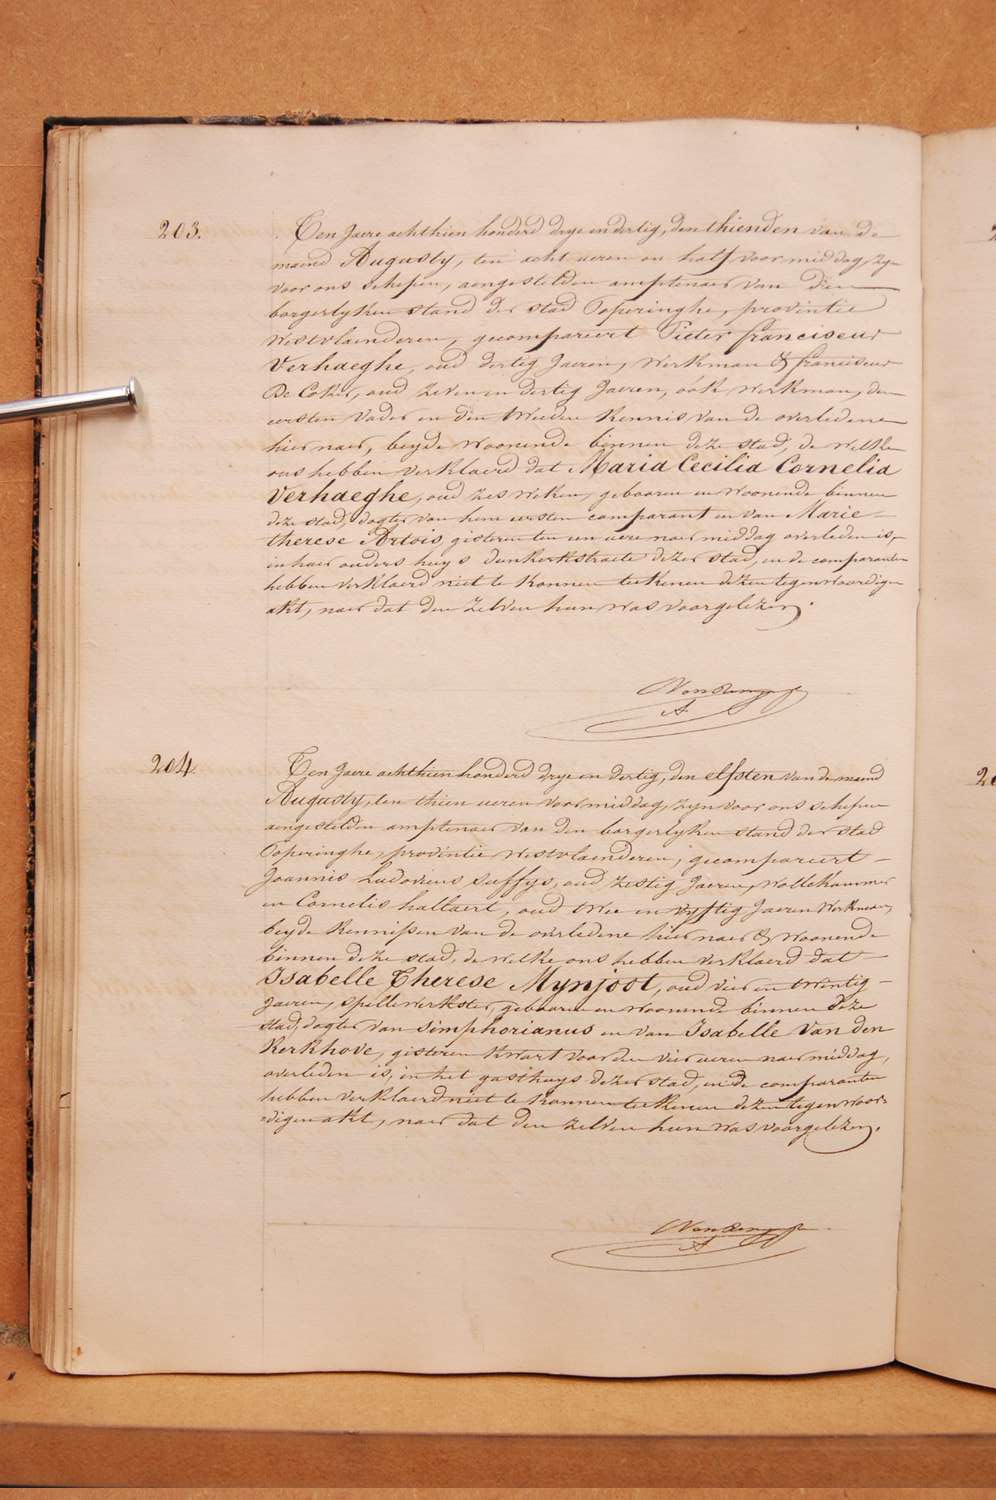 203.
Ten Jaere achthien honderd drye en dertig, den thienden van de
maend Augusty, ten acht ueren en half voormiddag, zyn
voor ons schepen, aengestelden amptenaer van den
borgerlyken stand der stad Poperinghe, provintie
Westvlaenderen, gecompareert Pieter franciscus
Verhaeghe, oud dertig Jaeren, Werkman & franciscus
De Coker, oud zeven en dertig Jaeren, ook Werkman, den
eersten Vader en den tweeden Kennis van de overledene
hier naer, beyde Woonende binnen deze stad, de welke
ons hebben verklaerd dat Maria Cecilia Cornelia
Verhaeghe, oud zes weken, gebooren en woonende binnen
deze stad, dogter van hem eersten comparant en van Marie
therese Artois, gisteren ten een uere naermiddag overleden is,
in haer ouders huys dunkerkstraete dezer stad, en de comparanten
hebben verklaerd niet te konnen teekenen dezen tegenwoordigen
akt, naer dat den zelven hun was voorgelezen.
204.
Ten Jaere achthien honderd drye en dertig, den elfsten van de maend
Augusty, ten thien ueren voormiddag, zyn voor ons schepen
aengestelden amptenaer van den borgerlyken stand der stad
Poperinghe, provintie Westvlaenderen, gecompareert
Joannis Ludovicus suffys, oud zestig Jaeren, Wollekammer
en Cornelis hallaert, oud twee en vyftig Jaeren Werkman,
beyde Kennissen van de overledene hier naer & Woonende
binnen deze stad, de welke ons hebben verklaerd dat
Isabelle Therese Mynjoot, oud vier en twintig
Jaeren, spellewerkster, gebooren en woonende binnen deze
stad, dogter van simphorianus en van Isabelle Van den
Kerkhove, gisteren kwart voor den vier ueren naermiddag,
overleden is, in het gasthuys dezer stad, en de comparanten
hebben verklaerd niet te konnen teekenen dezen tegenwoor-
-digen akt, naer dat den zelven hun was voorgelezen.